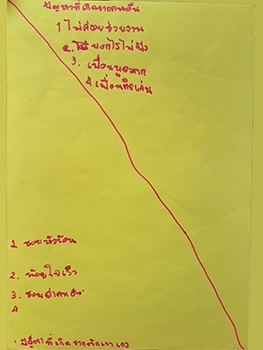 ปัญหาที่เกิดจากคนอื่น
1 ไม่ค่อยช่วยงาน
2. บอกไรไม่ฟัง
3. เพื่อนพูดมาก
4 เพื่อนกวนเล่น
1 ชอบหัวร้อน
2. น้อยใจเร็ว
3. ชอบด่าคนอื่น
4
ปัญหาที่เกิดจากตัวเราเอง